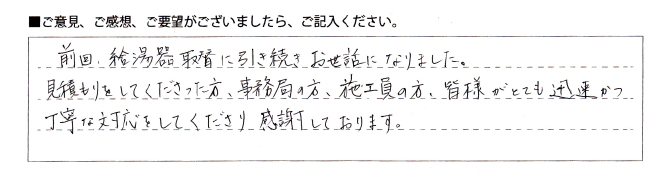 ■ご意見、ご感想、ご要望がございましたら、ご記入ください。
前回、給湯器取替に引き続きお世話になりました。
見積もりをしてくださった方、事務局の方、施工員の方、皆様がとても迅速かつ
丁寧な対応をしてくださり感謝しております。